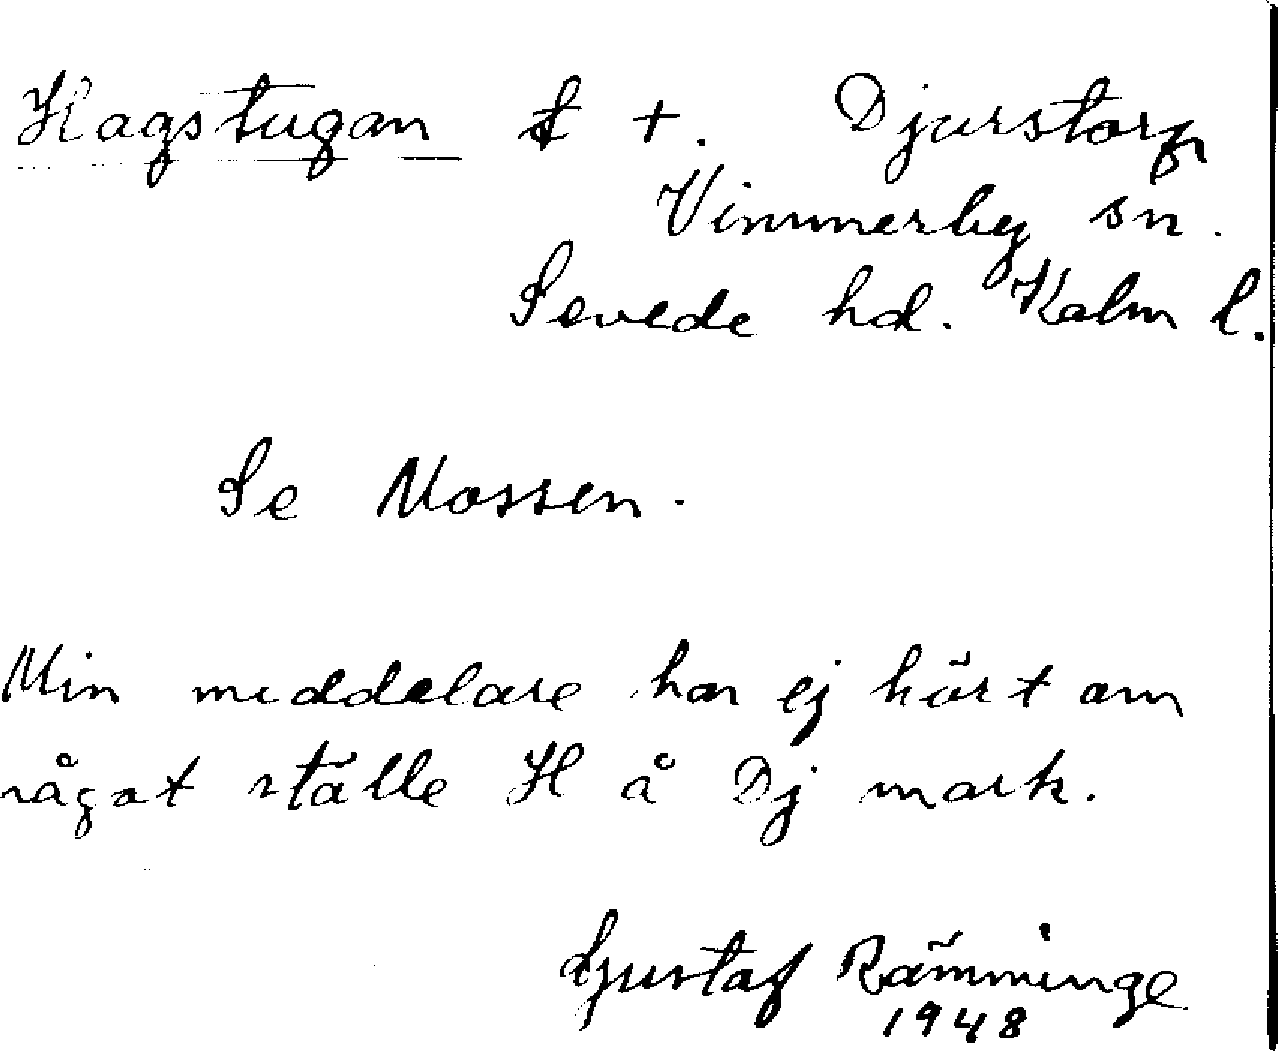 Hagstugan t +. Djurstorp
Vimmerby sn.
Sevede hd. Kalm l.
Se Mossen.
Min meddelare har ej hört om
något ställe H å Dj mark.
Gustaf Rämminge
1948